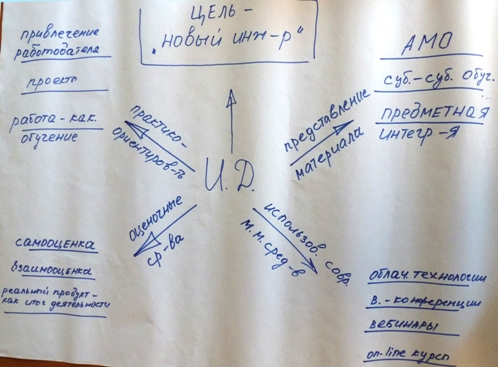 ЦЕЛЬ-
"НОВЫЙ ИНЖ-Р"
привлечение
работодателя
проекты
работа-как
обучение
практико-
ориентиров-ть
АМО
суб.-суб. обуч.
ПРЕДМЕТНАЯ
ИНТЕГР-Я
представление
материала
И.Д.
оценочные
ср-ва
самооценка
взаимооценка
реальный продукт-
как итог деятельности
использов. совр.
м.м. сред-в
облач технологии
в.-конференции
вебинары
on-line курсы